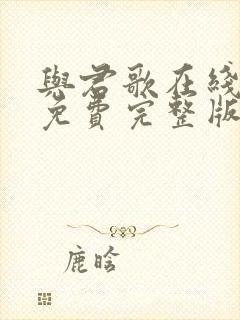 與君歌在綫
免費完整版
鹿晗